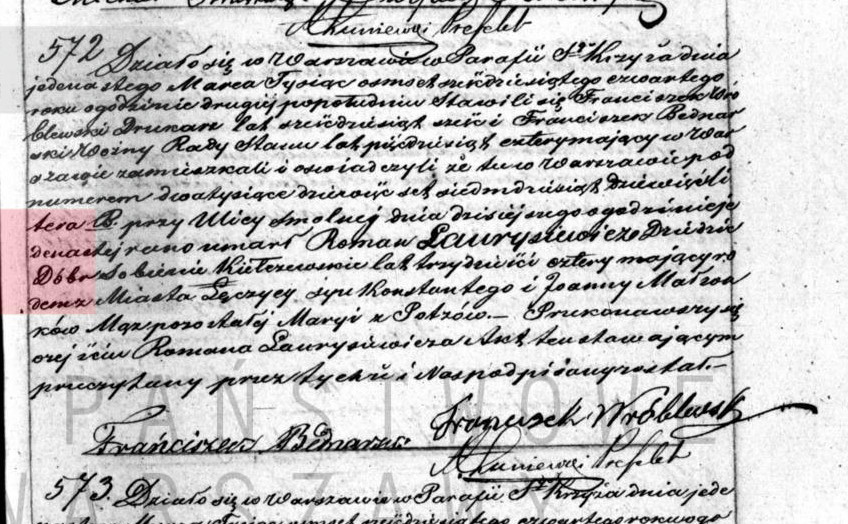 572 Działo się w Warszawie w Parafii Sgo Krzyża dnia
jedenastego Marca Tysiąc osmset sześćdziesiątego czwartego
roku o godzinie drugiej popołudniu Stawili się Franciszek Wró
blewski Drukarz lat sześćdziesiąt sześć i Franciszek Bednar
ski Woźny Rady Stanu lat pięćdziesiąt cztery mający w War
szawie zamieszkali i oświadczyli że tu w Warszawie pod
numerem dwatysiące dziewięć set siedmdziesiąt dziewięć li
tera B. przy Ulicy Smolnej dnia dzisiejszego o godzinie je
denastej rano umarł Roman Laurysiewicz Dziedzic
Dóbr Sobienie Kiełczewskie lat trzydzieści cztery mający ro
dem z Miasta Łęczycy syn Konstantego i Joanny Małżon
ków Mąż pozostałej Maryi z Potzów. — Przekonawszy się
o zejściu Romana Laurysiewicza Akt ten stawającym
przeczytany przez tychże i Nas podpisany został. —
Franciszek Bednarski Franciszek Wróblewski
Prefekt
573. Działo się w Warszawie w Parafii Sgo Krzyża dnia jede
PAŃSTWOWE
WARSZAW